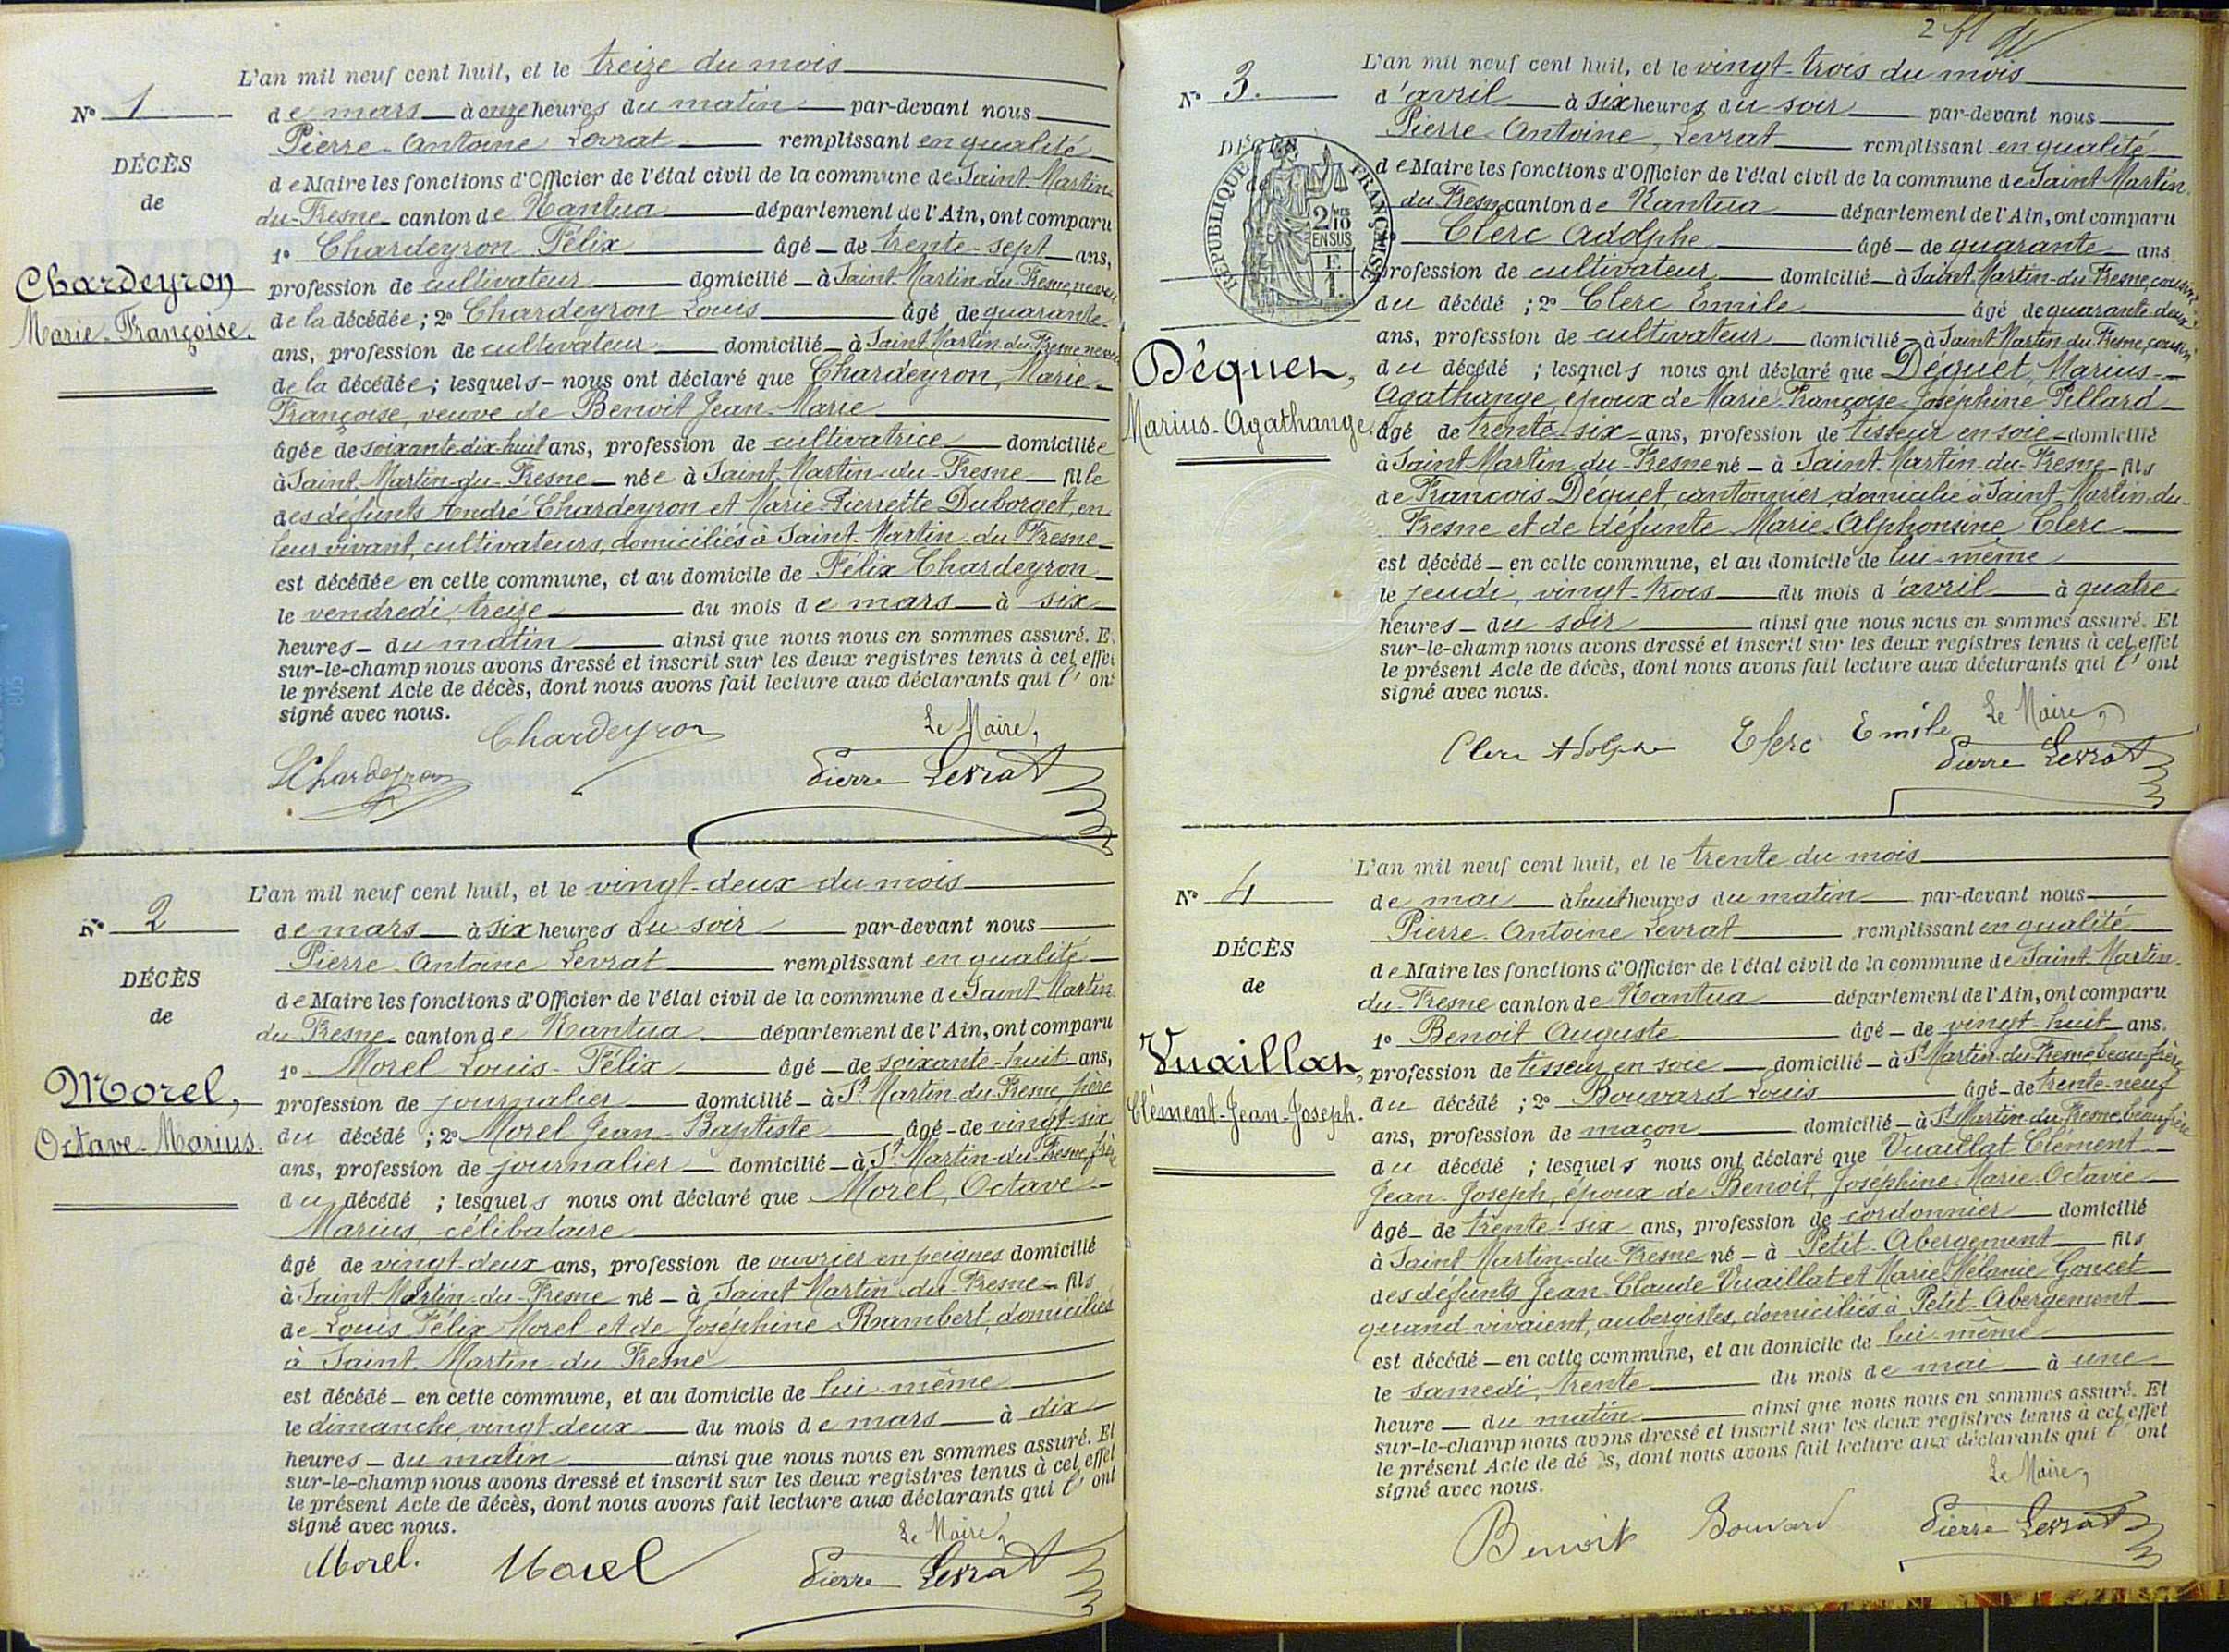 L'an mil neuf cent huit, et le treize du mois
N° 1
de mars à onze heures du matin par-devant nous
Pierre-Antoine Levrat remplissant en qualité
DÉCÈS
de Maire les fonctions d'Officier de l'état civil de la commune de Saint-Martin-
de
du-Fresne canton de Nantua département de l'Ain, ont comparu
1° Chardeyron Félix âgé de trente-sept ans,
Chardeyron
profession de cultivateur domicilié à Saint-Martin-du-Fresne, neveu
Marie-Françoise.
de la décédée ; 2° Chardeyron Louis âgé de quarante
ans, profession de cultivateur domicilié à Saint-Martin-du-Fresne neveu
de la décédée ; lesquels nous ont déclaré que Chardeyron, Marie-
Françoise, veuve de Benoit Jean-Marie
âgée de soixante-dix-huit ans, profession de cultivatrice domiciliée
à Saint-Martin-du-Fresne née à Saint-Martin-du-Fresne fille
des défunts André Chardeyron et Marie-Pierrette Duborget, en
leur vivant, cultivateurs, domiciliés à Saint-Martin-du-Fresne
est décédée en cette commune, et au domicile de Félix Chardeyron
le vendredi, treize du mois de mars à six
heures du matin ainsi que nous nous en sommes assuré. E
sur-le-champ nous avons dressé et inscrit sur les deux registres tenus à cet effet
le présent Acte de décès, dont nous avons fait lecture aux déclarants qui l'ont
signé avec nous.
Chardeyron Le Maire,
LChardeyron Pierre Levrat
L'an mil neuf cent huit, et le vingt-deux du mois
N° 2
de mars à six heures du soir par-devant nous
Pierre-Antoine Levrat remplissant en qualité
DÉCÈS
de Maire les fonctions d'Officier de l'état civil de la commune de Saint-Martin
de
du-Fresne canton de Nantua département de l'Ain, ont comparu
1° Morel Louis-Félix âgé de soixante-huit ans,
Morel,
profession de journalier domicilié à St Martin-du-Fresne, père
Octave-Marius.
du décédé ; 2° Morel Jean-Baptiste âgé de vingt-six
ans, profession de journalier domicilié à St Martin-du-Fresne, frère
du décédé ; lesquels nous ont déclaré que Morel, Octave-
Marius, célibataire
âgé de vingt-deux ans, profession de ouvrier en peignes domicilié
à Saint-Martin-du-Fresne né à Saint-Martin-du-Fresne fils
de Louis Félix Morel et de Joséphine Rambert, domiciliés
à Saint-Martin-du-Fresne
est décédé en cette commune, et au domicile de lui-même
le dimanche, vingt-deux du mois de mars à dix
heures du matin ainsi que nous nous en sommes assuré. Et
sur-le-champ nous avons dressé et inscrit sur les deux registres tenus à cet effet
le présent Acte de décès, dont nous avons fait lecture aux déclarants qui l'ont
signé avec nous.
Le Maire,
Morel. Morel Pierre Levrat
L'an mil neuf cent huit, et le vingt-trois du mois
N° 3.
d'avril à six heures du soir par-devant nous
Pierre-Antoine, Levrat remplissant en qualité
DÉCÈS
de
RÉPUBLIQUE FRANÇAISE
2/10 EN SUS
de Maire les fonctions d'Officier de l'état civil de la commune de Saint-Martin
du Fresne canton de Nantua département de l'Ain, ont comparu
Clerc Adolphe âgé de quarante ans
profession de cultivateur domicilié à Saint-Martin-du-Fresne, cousin
du décédé ; 2° Clerc Emile âgé de quarante-deux
ans, profession de cultivateur domicilié à Saint-Martin-du-Fresne, cousin
Déquet,
du décédé ; lesquels nous ont déclaré que Déquet, Marius-
Marius-Agathange.
Agathange, époux de Marie-Françoise-Joséphine Pillard
âgé de trente-six ans, profession de tisseur en soie domicilié
à Saint-Martin-du-Fresne né à Saint-Martin-du-Fresne fils
de François Déquet, cantonnier, domicilié à Saint-Martin-du-
Fresne et de défunte Marie-Alphonsine Clerc
est décédé en cette commune, et au domicile de lui-même
le jeudi, vingt-trois du mois d'avril à quatre
heures du soir ainsi que nous nous en sommes assuré. Et
sur-le-champ nous avons dressé et inscrit sur les deux registres tenus à cet effet
le présent Acte de décès, dont nous avons fait lecture aux déclarants qui l'ont
signé avec nous.
Le Maire,
Clerc Adolphe Clerc Emile Pierre Levrat
L'an mil neuf cent huit, et le trente du mois
N° 4
de mai à huit heures du matin par-devant nous
Pierre-Antoine Levrat remplissant en qualité
DÉCÈS
de Maire les fonctions d'Officier de l'état civil de la commune de Saint-Martin-
de
du-Fresne canton de Nantua département de l'Ain, ont comparu
1° Benoit Auguste âgé de vingt-huit ans.
Vuaillat,
profession de tisseur en soie domicilié à St Martin-du-Fresne beau frère
Clément-Jean-Joseph.
du décédé ; 2° Bouvard Louis âgé de trente-neuf
ans, profession de maçon domicilié à St Martin-du-Fresne beau frère
du décédé ; lesquels nous ont déclaré que Vuaillat Clément-
Jean-Joseph, époux de Benoit, Joséphine-Marie-Octavie
âgé de trente-six ans, profession de cordonnier domicilié
à Saint-Martin-du-Fresne né à Petit-Abergement fils
des défunts Jean-Claude Vuaillat et Marie Mélanie Goncet
quand vivaient, aubergistes, domiciliés à Petit-Abergement
est décédé en cette commune, et au domicile de lui-même
le samedi, trente du mois de mai à une
heure du matin ainsi que nous nous en sommes assuré. Et
sur-le-champ nous avons dressé et inscrit sur les deux registres tenus à cet effet
le présent Acte de dé s, dont nous avons fait lecture aux déclarants qui l'ont
signé avec nous.
Le Maire,
Benoit Bouvard Pierre Levrat